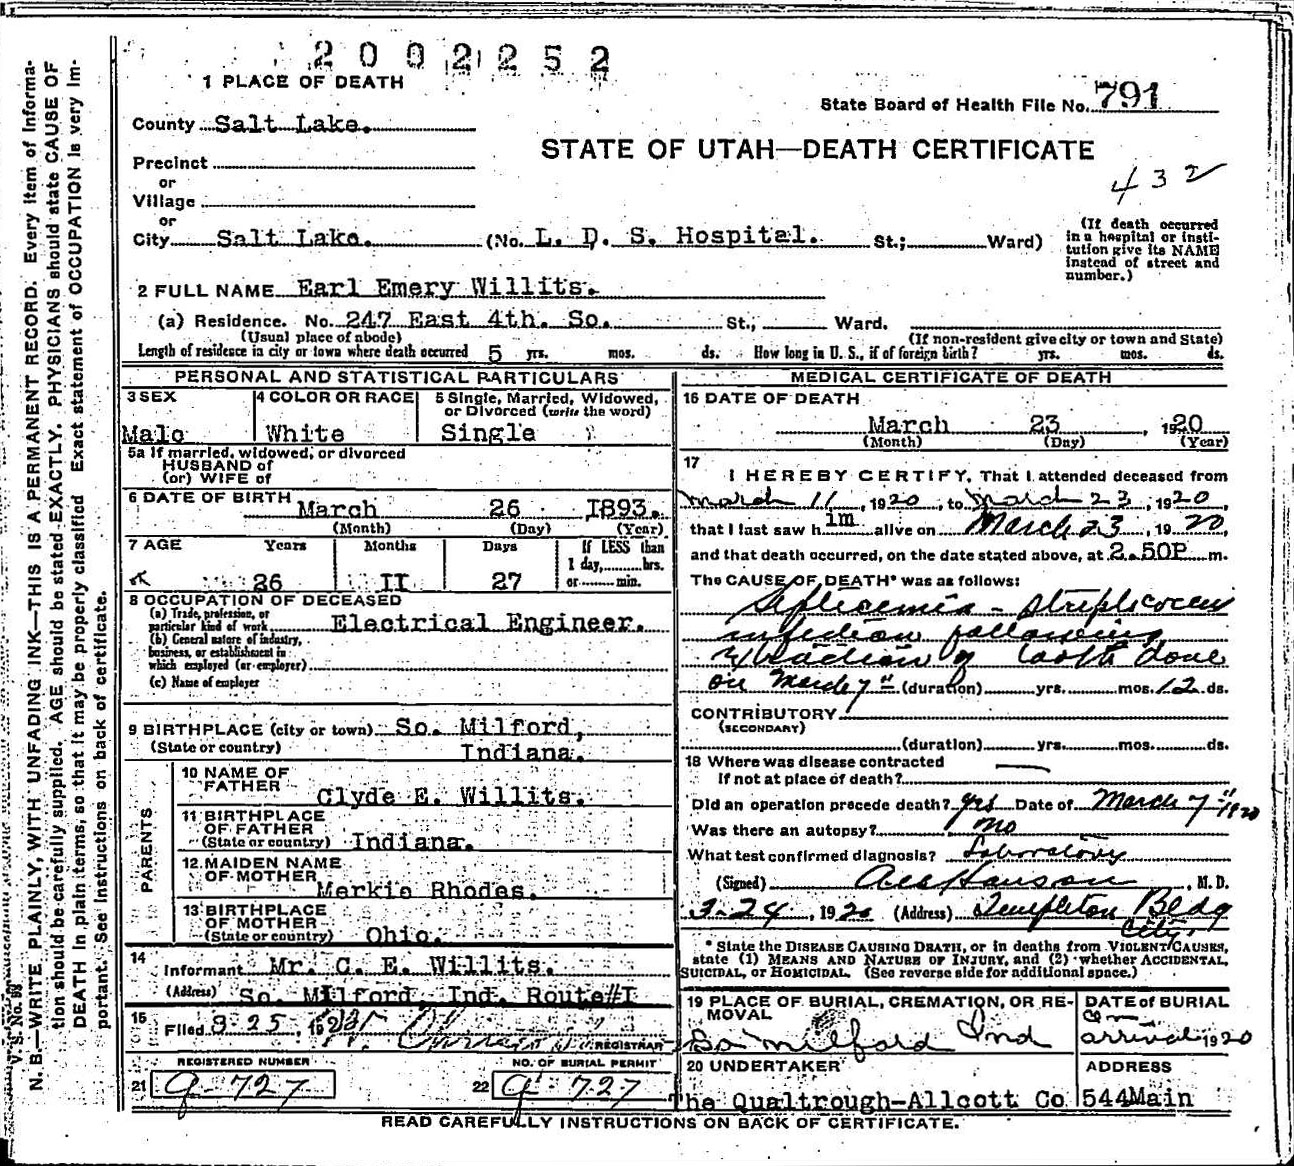 N. B.—WRITE PLAINLY, WITH UNFADING INK—THIS IS A PERMANENT RECORD. Every item of informa-
tion should be carefully supplied. AGE should be stated EXACTLY. PHYSICIANS should state CAUSE OF
DEATH in plain terms, so that it may be properly classified Exact statement of OCCUPATION is very im-
portant. See instructions on back of certificate.
V. S. No. 98
2002252
1 PLACE OF DEATH
State Board of Health File No. 791
County Salt Lake.
STATE OF UTAH—DEATH CERTIFICATE
432
Precinct
or
Village
or
City Salt Lake. (No. L. D. S. Hospital. St.; Ward)
(If death occurred
in a hospital or insti-
tution give its NAME
instead of street and
number.)
2 FULL NAME Earl Emery Willits.
(a) Residence. No. 247 East 4th. So. St., Ward.
(Usual place of abode) (If non-resident give city or town and State)
Length of residence in city or town where death occurred 5 yrs. mos. ds. How long in U. S., if of foreign birth? yrs. mos. ds.
PERSONAL AND STATISTICAL PARTICULARS
3 SEX 4 COLOR OR RACE 5 Single, Married, Widowed,
or Divorced (write the word)
Male White Single
5a If married, widowed, or divorced
HUSBAND of
(or) WIFE of
6 DATE OF BIRTH
March 26 1893.
(Month) (Day) (Year)
7 AGE Years Months Days If LESS than
1 day, hrs.
26 II 27 or min.
8 OCCUPATION OF DECEASED
(a) Trade, profession, or
particular kind of work Electrical Engineer.
(b) General nature of industry,
business, or establishment in
which employed (or employer)
(c) Name of employer
9 BIRTHPLACE (city or town) So. Milford,
(State or country) Indiana.
PARENTS
10 NAME OF
FATHER Clyde E. Willits.
11 BIRTHPLACE
OF FATHER
(State or country) Indiana.
12 MAIDEN NAME
OF MOTHER Merkie Rhodes.
13 BIRTHPLACE
OF MOTHER
(State or country) Ohio.
14
Informant Mr. C. E. Willits.
(Address) So. Milford, Ind. Route#I
15
Filed 3-25, 192
REGISTRAR
REGISTERED NUMBER NO. OF BURIAL PERMIT
21 g-727 22 g-727
MEDICAL CERTIFICATE OF DEATH
16 DATE OF DEATH
March 23, 1920
(Month) (Day) (Year)
17
I HEREBY CERTIFY, That I attended deceased from
March 11, 1920, to March 23, 1920
that I last saw him alive on March 23, 1920,
and that death occurred, on the date stated above, at 2.50P m.
The CAUSE OF DEATH* was as follows:
Septicemia - streptococcus
infection following
extraction of tooth done
on March 7" (duration) yrs. mos. 12 ds.
CONTRIBUTORY
(SECONDARY)
(duration) yrs. mos. ds.
18 Where was disease contracted
If not at place of death? —
Did an operation precede death? yes Date of March 7" 1920
Was there an autopsy? no
What test confirmed diagnosis? Laboratory
(Signed) Hanson, M. D.
3-24, 1920 (Address) Templeton Bldg
City.
* State the DISEASE CAUSING DEATH, or in deaths from VIOLENT CAUSES,
state (1) MEANS AND NATURE OF INJURY, and (2) whether ACCIDENTAL,
SUICIDAL, or HOMICIDAL. (See reverse side for additional space.)
19 PLACE OF BURIAL, CREMATION, OR RE-
MOVAL
So Milford Ind
DATE of BURIAL
on
arrival 1920
20 UNDERTAKER ADDRESS
The Qualtrough-Allcott Co 544Main
READ CAREFULLY INSTRUCTIONS ON BACK OF CERTIFICATE.